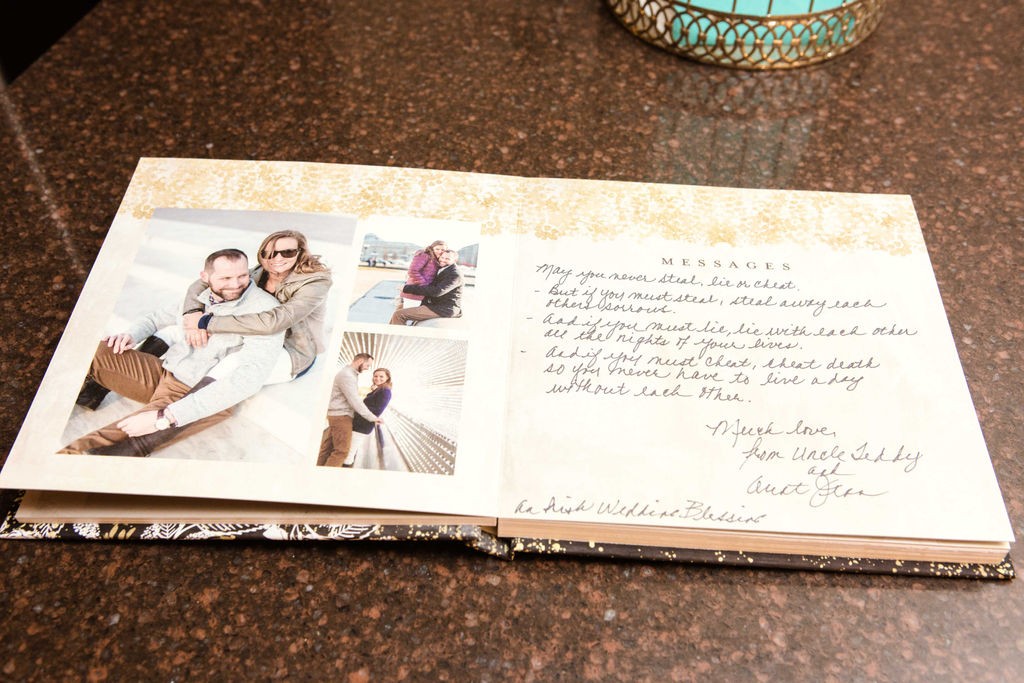 MESSAGES
May you never steal, lie or cheat.
- But if you must steal, steal away each
others sorrows.
- And if you must lie, lie with each other
all the nights of your lives.
- And if you must cheat, cheat death
so you never have to live a day
without each other.
Much love,
from Uncle Teddy
and
Aunt Jean
An Irish Wedding Blessing